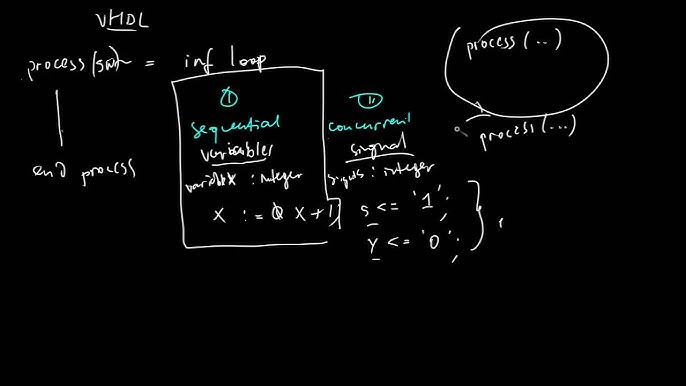 VHDL
process(sw) = inf loop
end process
①
sequential
variables
variable X : integer
X := X + 1;
②
concurrent
signal
signal s : integer
s <= '1';
y <= '0';
process (...)
process (...)